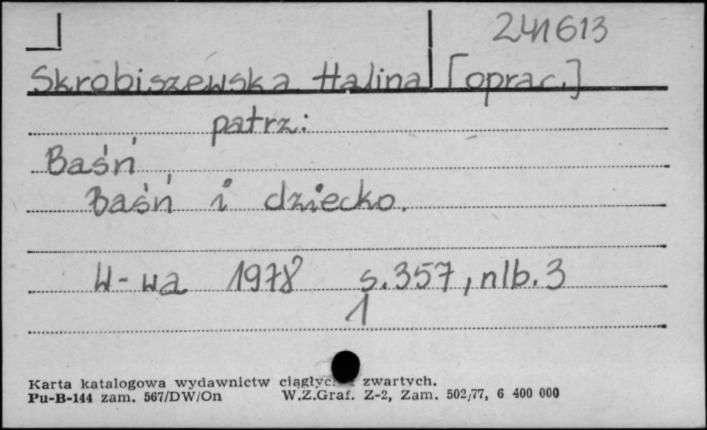 241613
Skrobiszewska Halina [oprac.]
patrz:
Baśń
Baśń i dziecko.
W-wa 1978 s.357, nlb.3
1
Karta katalogowa wydawnictw zwartych.
Pu-B-144 zam. 567/DW/On W.Z.Graf. Z-2, Zam. 502/77, 6 400 000